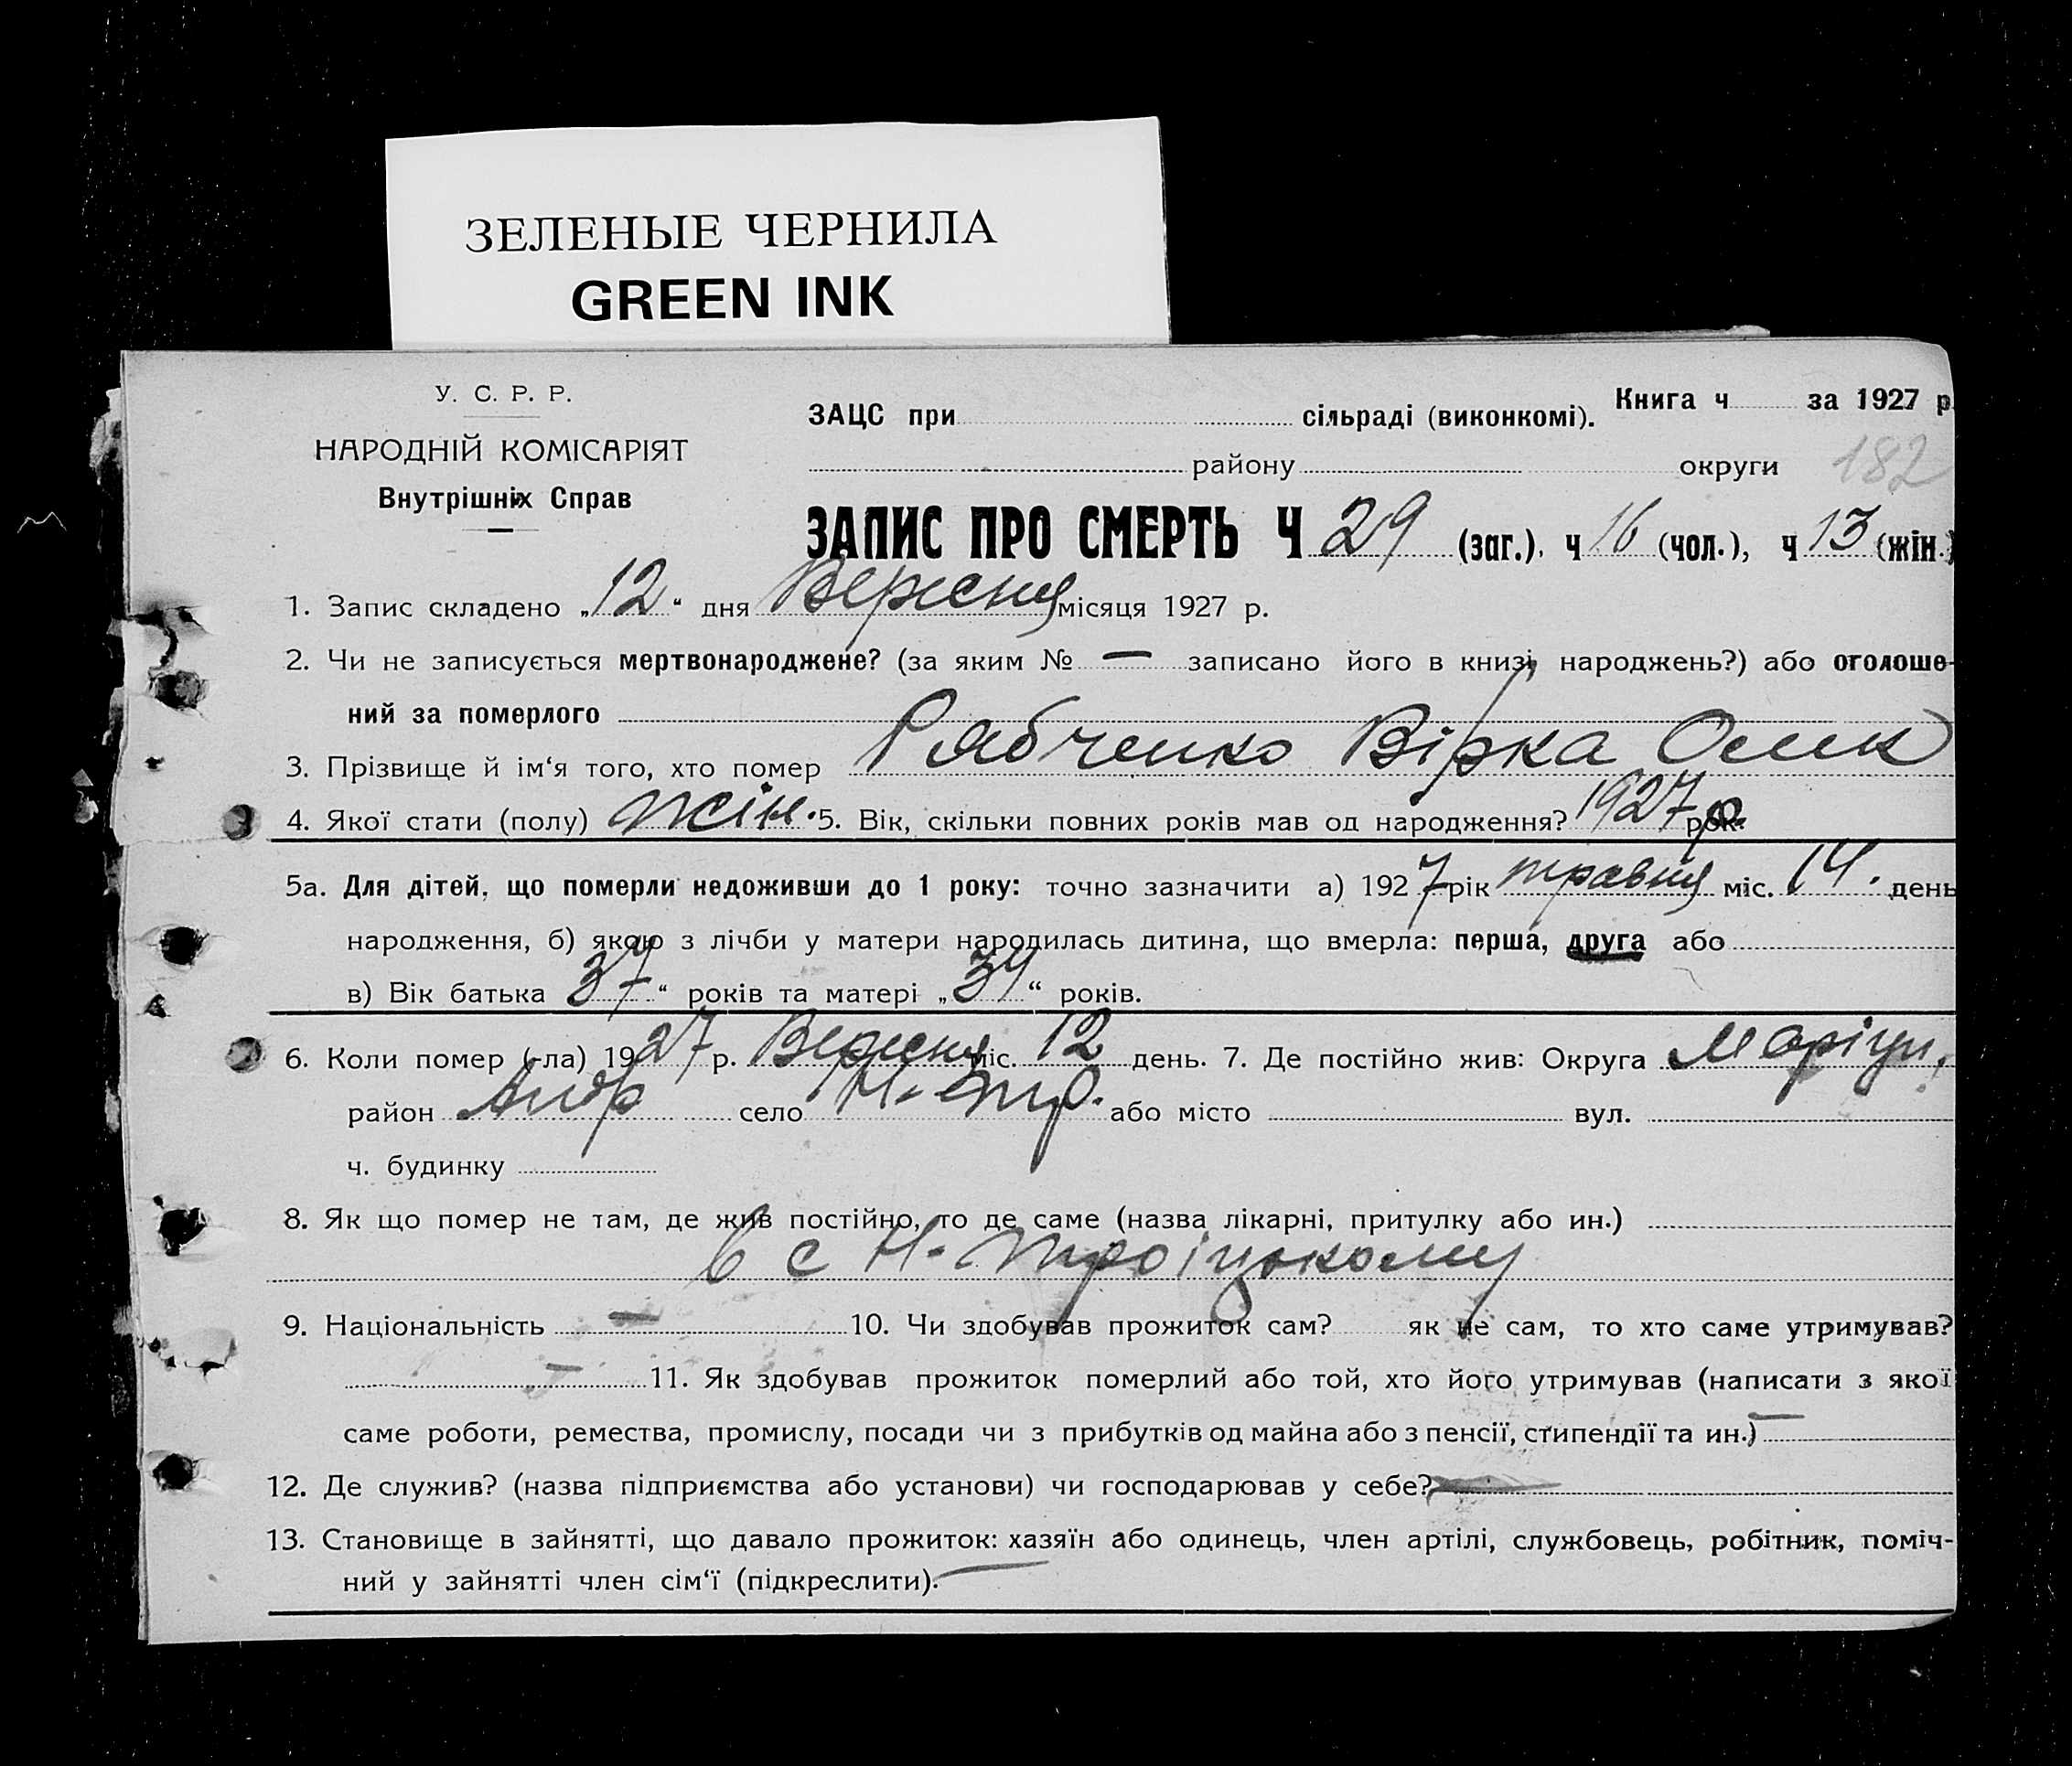 ЗЕЛЕНЫЕ ЧЕРНИЛА
GREEN INK
У. С. Р. Р.
НАРОДНІЙ КОМІСАРІЯТ
Внутрішніх Справ
Книга ч за 1927 р.
ЗАЦС при сільраді (виконкомі).
району округи 182
ЗАПИС ПРО СМЕРТЬ Ч 29 (заг.), ч 16 (чол.), ч 13 (жін.)
1. Запис складено „12“ дня Вересня місяця 1927 р.
2. Чи не записується мертвонароджене? (за яким № — записано його в книзі народжень?) або оголоше-
ний за померлого
3. Прізвище й ім‘я того, хто помер Рябченко Вірка
4. Якої стати (полу) жін. 5. Вік, скільки повних років мав од народження? 1927 р. рок.
5а. Для дітей, що померли недоживши до 1 року: точно зазначити а) 1927 рік травня міс. 14. день
народження, б) якою з лічби у матери народилась дитина, що вмерла: перша, друга або
в) Вік батька 37“ років та матері „34“ років.
6. Коли помер (-ла) 1927 р. Вересня міс. 12 день. 7. Де постійно жив: Округа Маріуп.
район Андр село Н-Тр. або місто вул.
ч. будинку
8. Як що помер не там, де жив постійно, то де саме (назва лікарні, притулку або ин.)
в с Н-Троіцькому
9. Національність — 10. Чи здобував прожиток сам? як не сам, то хто саме утримував?
— 11. Як здобував прожиток померлий або той, хто його утримував (написати з якої
саме роботи, ремества, промислу, посади чи з прибутків од майна або з пенсії, стипендії та ин.) —
12. Де служив? (назва підприємства або установи) чи господарював у себе? —
13. Становище в зайнятті, що давало прожиток: хазяїн або одинець, член артілі, службовець, робітник, поміч-
ний у зайнятті член сім‘ї (підкреслити). —